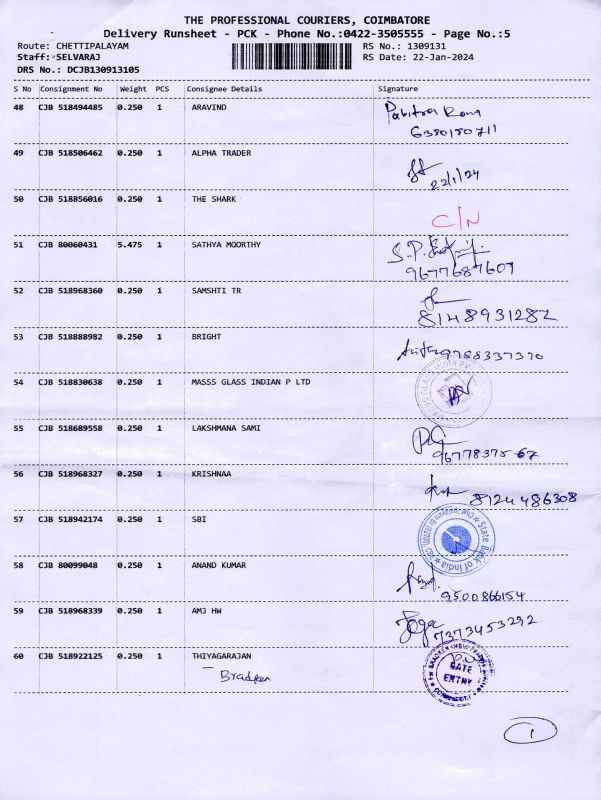 THE PROFESSIONAL COURIERS, COIMBATORE
Delivery Runsheet - PCK - Phone No.:0422-3505555 - Page No.:5
Route: CHETTIPALAYAM RS No.: 1309131
Staff: SELVARAJ RS Date: 22-Jan-2024
DRS No.: DCJB130913105
S No Consignment No Weight PCS Consignee Details Signature
48 CJB 518494485 0.250 1 ARAVIND Pabitra Rana
6380180711
49 CJB 518506462 0.250 1 ALPHA TRADER
22/1/24
50 CJB 518856016 0.250 1 THE SHARK
C/N
51 CJB 80060431 5.475 1 SATHYA MOORTHY S.P.
9677687609
52 CJB 518968360 0.250 1 SAMSHTI TR
8148931282
53 CJB 518888982 0.250 1 BRIGHT
9788337370
54 CJB 518830638 0.250 1 MASSS GLASS INDIAN P LTD
55 CJB 518689558 0.250 1 LAKSHMANA SAMI
9677837567
56 CJB 518968327 0.250 1 KRISHNAA
8124486308
57 CJB 518942174 0.250 1 SBI State Bank of India
58 CJB 80099048 0.250 1 ANAND KUMAR
9500866154
59 CJB 518968339 0.250 1 AMJ HW
7373453292
60 CJB 518922125 0.250 1 THIYAGARAJAN
GATE
ENTRY
1